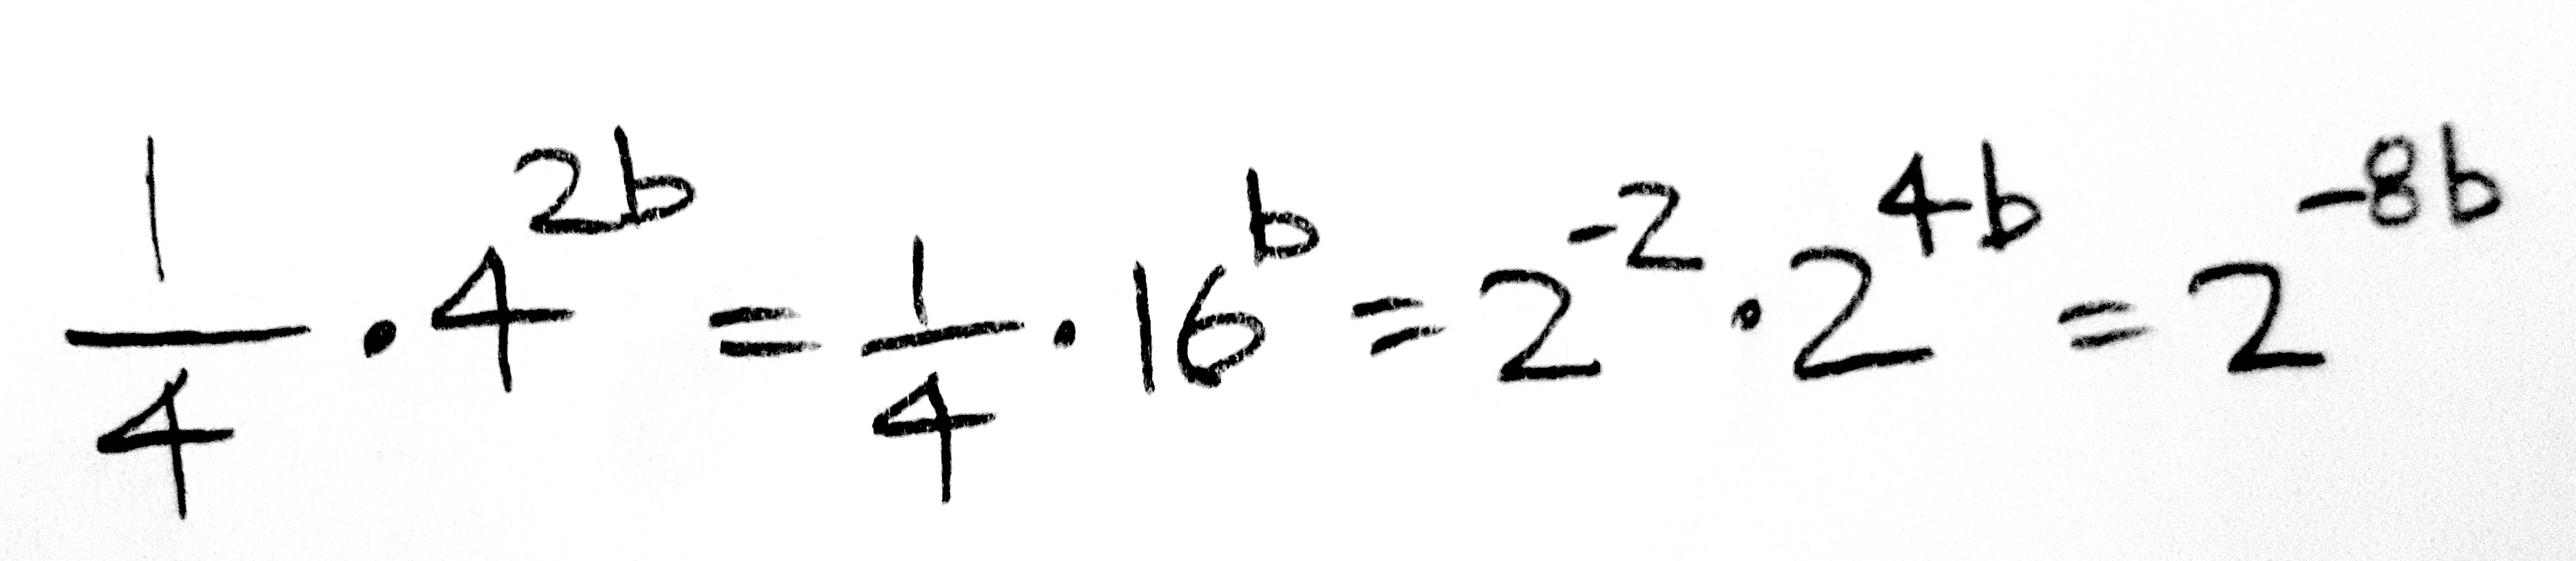 1/4 · 4^{2b} = 1/4 · 16^b = 2^{-2} · 2^{4b} = 2^{-8b}